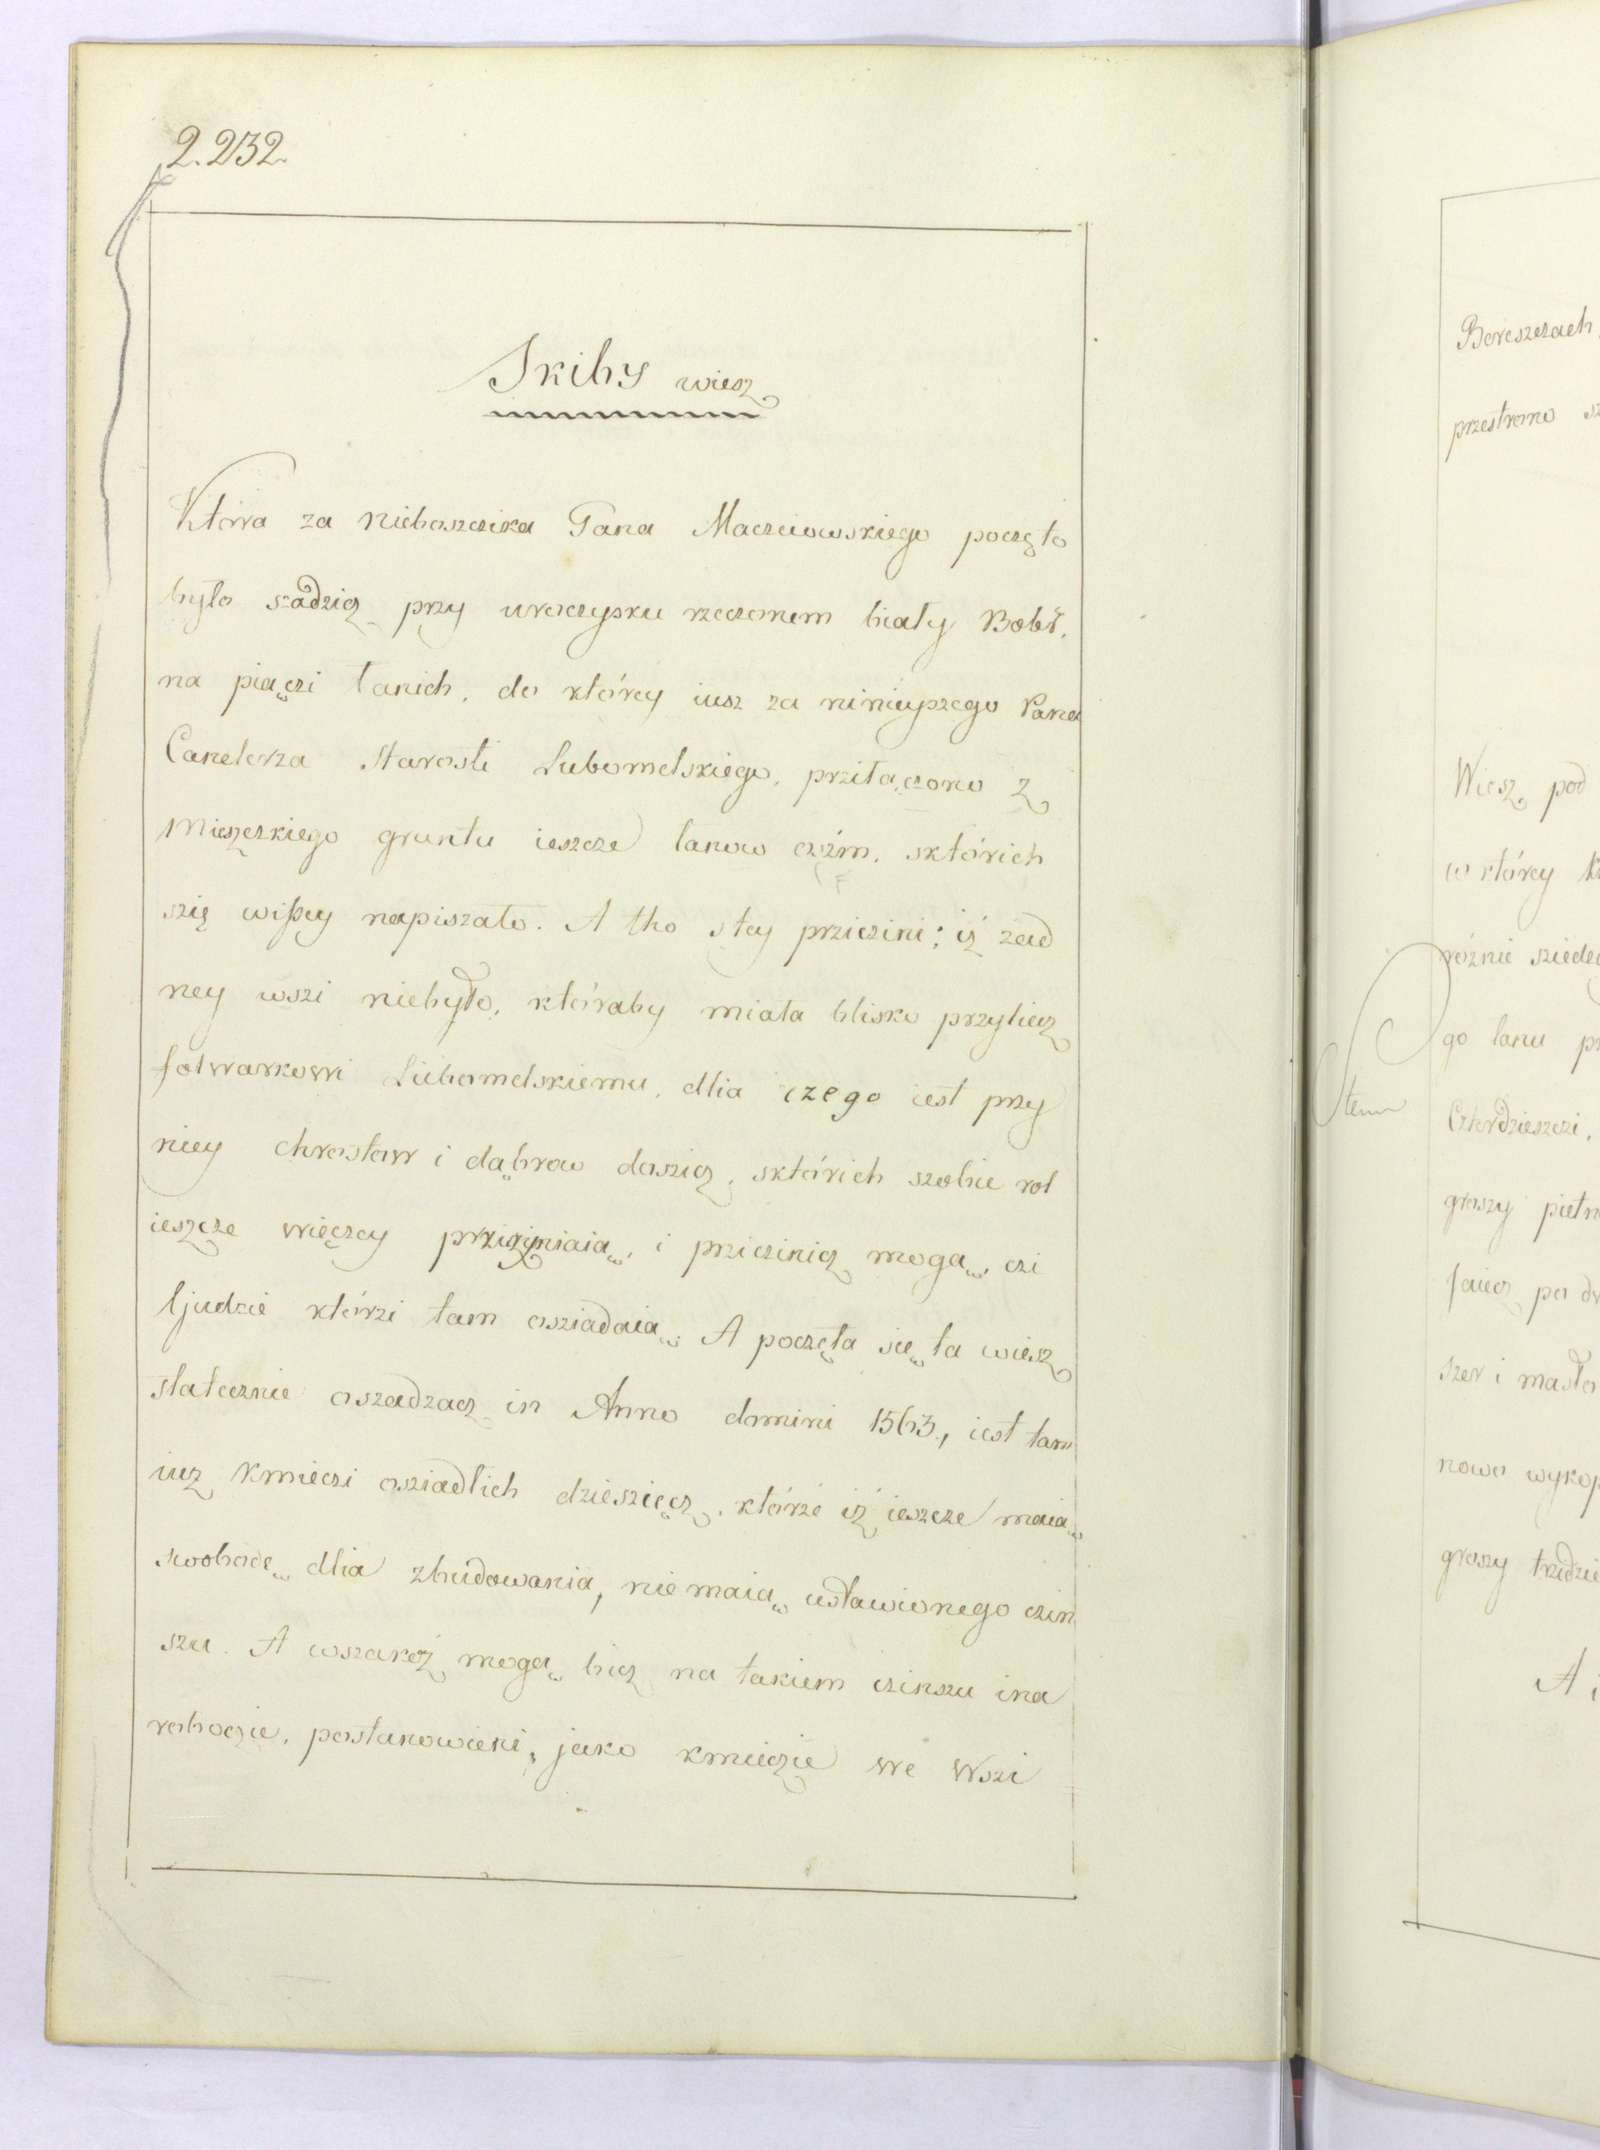 2.232.
Skiby wiesz
Którra za nieboszczika Pana Macziowskiego poczęto
było szadzicz przy uroczysku rzeczonem biały Bobr,
na piączi łanich, do którey iusz za ninieyszego Pana
Canclerza Starosti Lubomelskiego, prziłączono z
Mieszczkiego gruntu ieszcze łanow ózm, sktórich
szię wißey napiszało. A tho stey prziczini; iż zad
ney wszi niebyło, któraby miała blisko przyliecz
folwarkowi Lubomelskiemu, dlia czego iest przy
niey chrostow i dąbrow doszicz, sktórich szobie rol
ieszcze więczey przicziniaią, i przicinicz mogą, czi
ljudzie którzi tam osziadaią. A poczęła się ta wiesz
statecznie oszadzacz in Anno domini 1563, iest tam
iuz Kmieczi osziadlich dzieszięcz, którzé iż ieszcze maią
swobodę dlia zbudowania, nie maią ustawionego czin
szu. A wszakoż mogą bicz na takiem czinszu ina
roboczie, postanowieni, jako kmieczie we Wszi
Bereszczach,
przestrono
Wiesz, pod
w którey
różnie sziede
go łanu
Item
Czterdzieszczi,
groszy pietn
Jaiecz po
szer i masło
nowo wykop
groszy trzidzie
A i